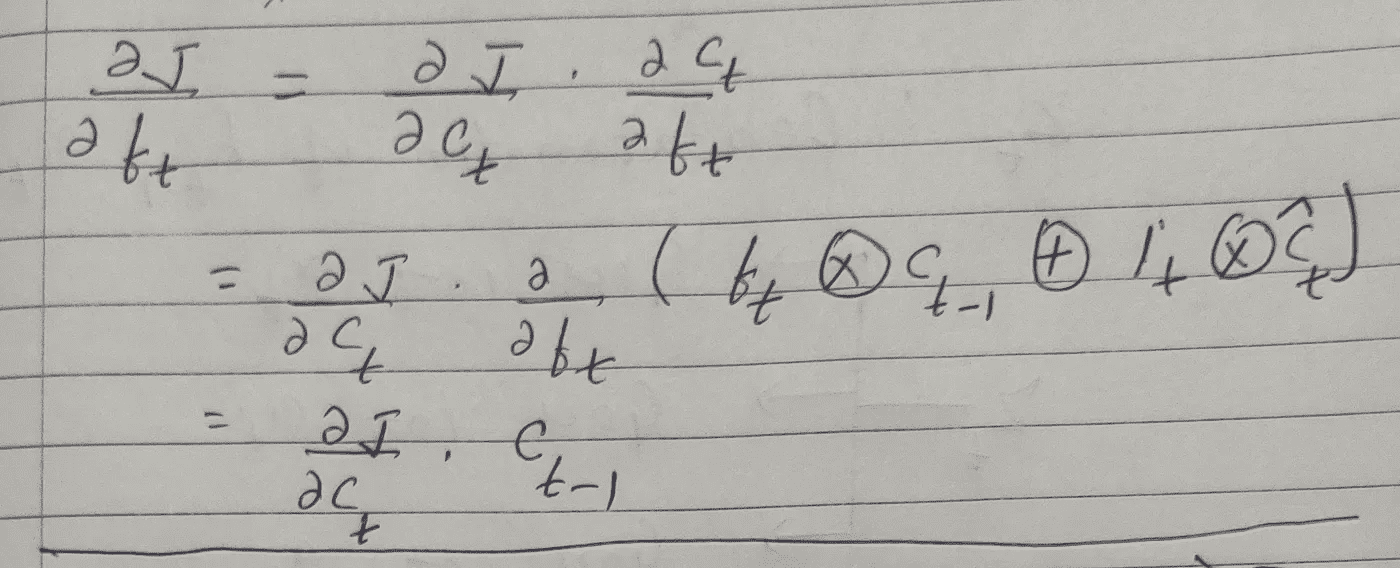 ∂J/∂f_t = ∂J/∂C_t · ∂C_t/∂f_t
= ∂J/∂C_t · ∂/∂f_t ( f_t ⊗ C_{t-1} ⊕ i_t ⊗ Ĉ_t )
= ∂J/∂C_t · C_{t-1}